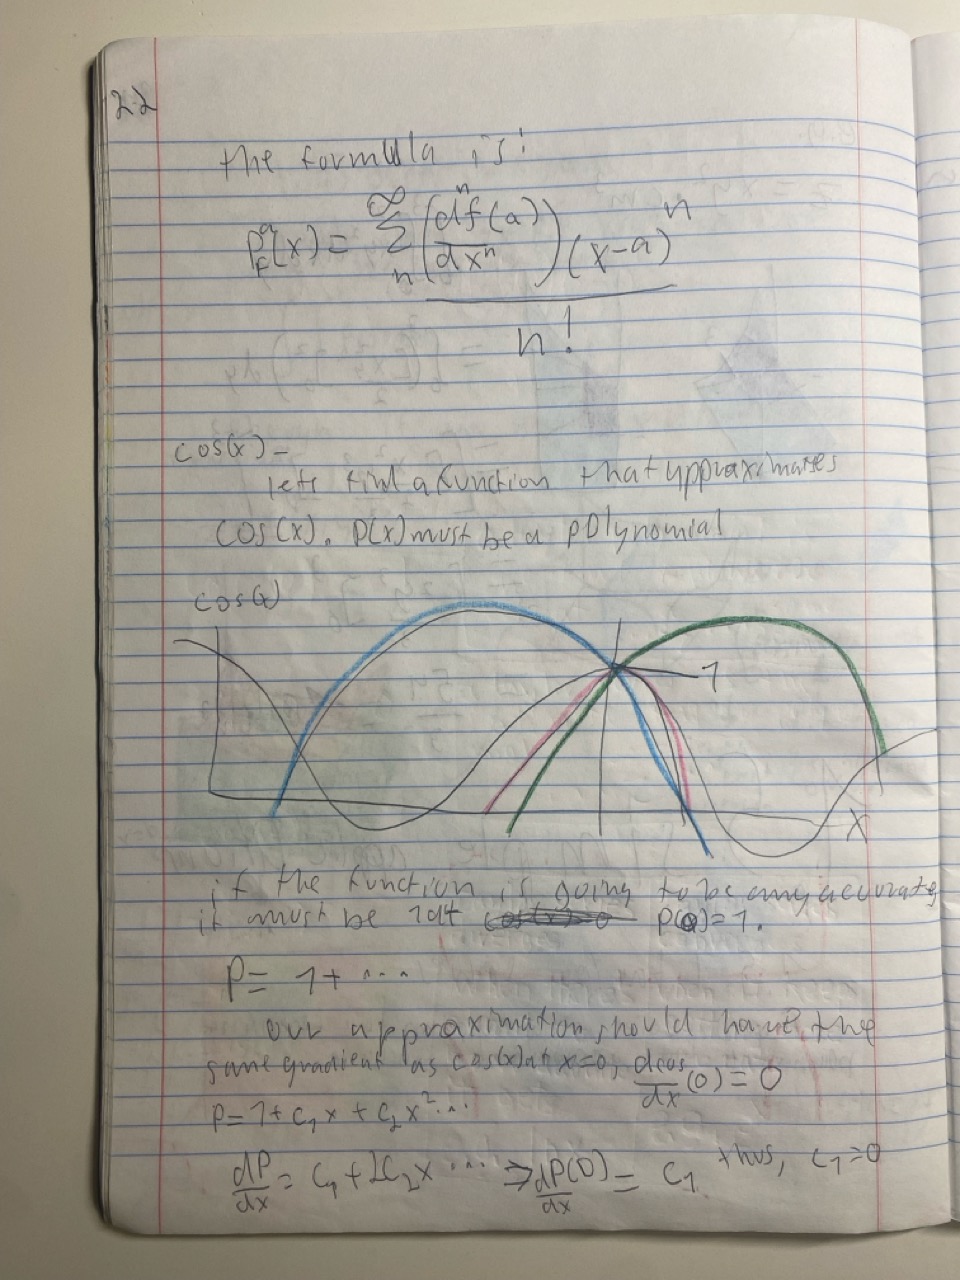 2.2
the formula is:
P_f^a(x) = ∞ Σ n (d^n f(a) / dx^n) (x-a)^n / n!
cos(x) -
lets find a function that approximates
cos(x). P(x) must be a polynomial
cos(x)
1
x
if the function is going to be any accurate
it must be 1 at P(0)=1.
P= 1+ ...
our approximation should have the
same gradient as cos(x) at x=0, dcos/dx (0) = 0
P=1+c₁x+c₂x²...
dP/dx = c₁+2c₂x ... ⇒ dP(0)/dx = c₁ thus, c₁=0